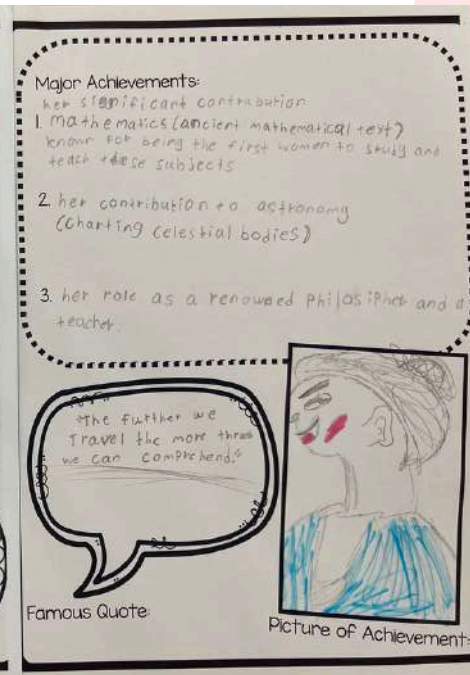 Major Achievements:
her significant contribution
1. mathematics (ancient mathematical text)
known for being the first women to study and
teach these subjects
2. her contribution to astronomy
(Charting celestial bodies)
3. her role as a renowded Philasipher and a
teacher.
"The further we
Travel the more
we can comprehend."
Famous Quote:
Picture of Achievement: